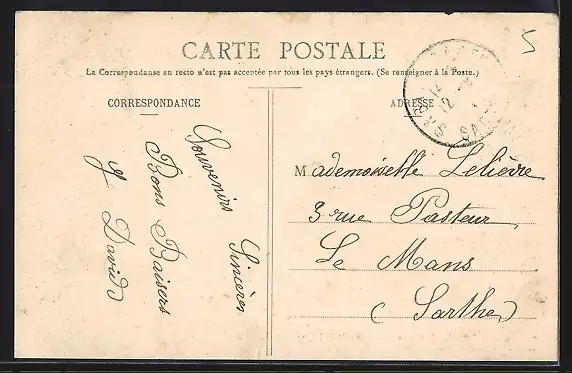 5
CARTE POSTALE
La Correspondanse au recto n'est pas acceptée par tous les pays étrangers. (Se renseigner à la Poste.)
CORRESPONDANCE
ADRESSE
Souvenirs Sincères
Bons Baisers
David
Mademoiselle Lelièvre
3 rue Pasteur
Le Mans
(Sarthe)